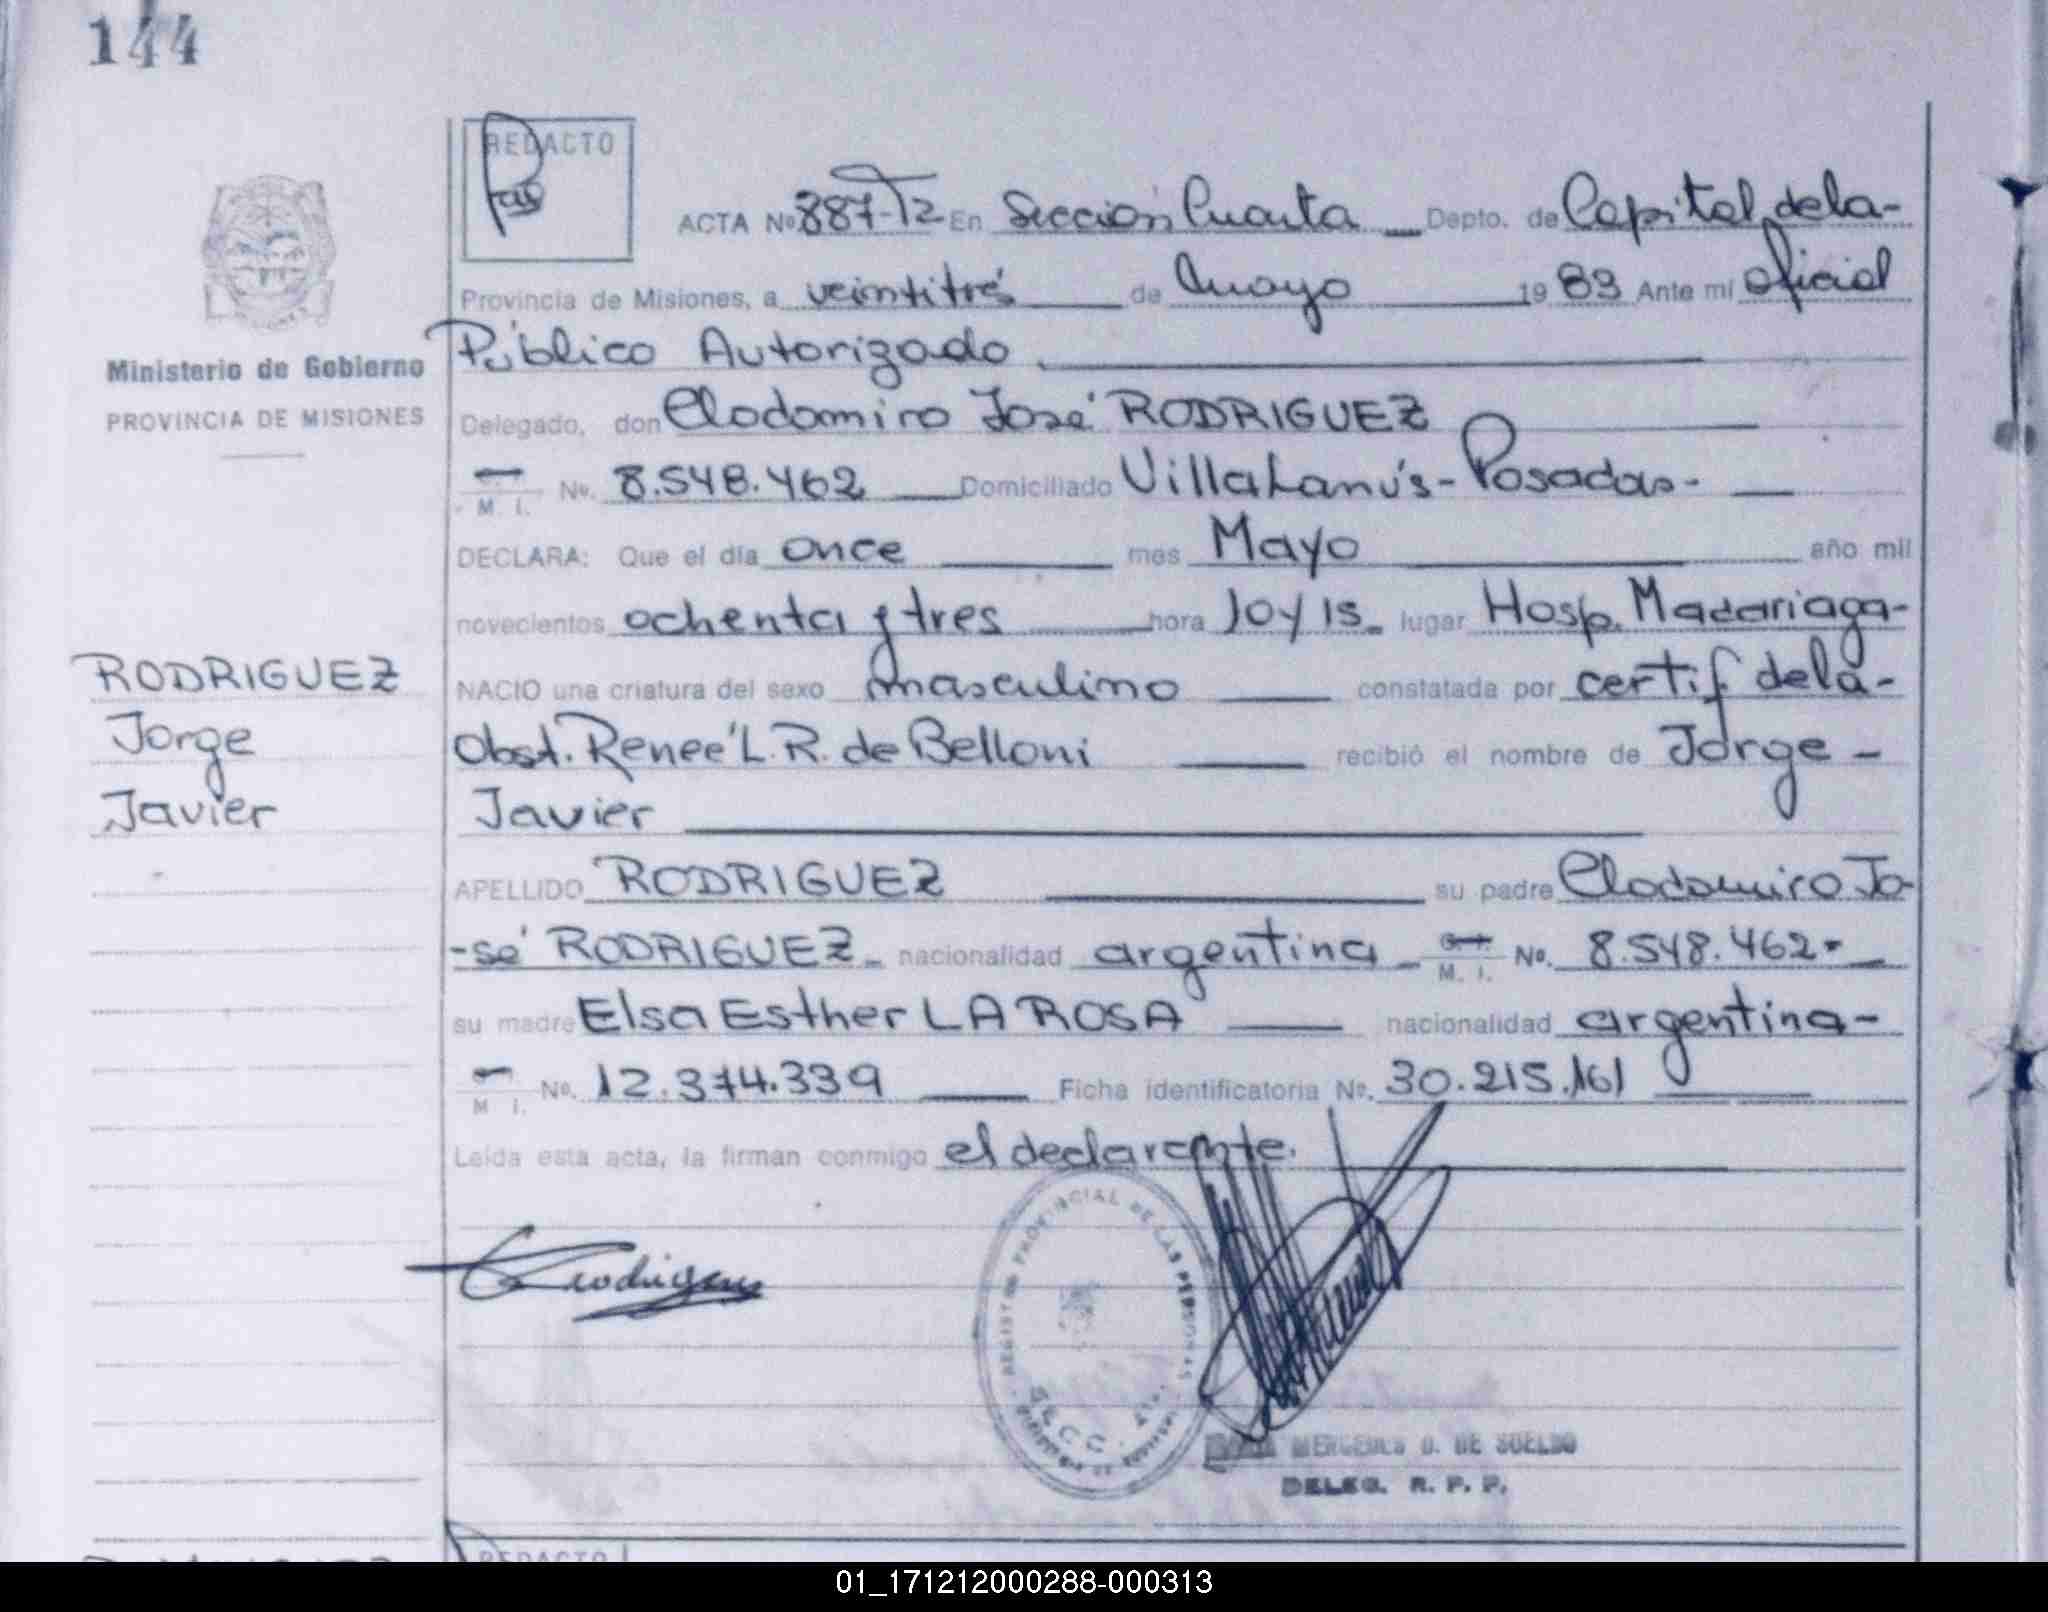 144
REDACTO
ACTA Nº 887-T2 En Sección Cuarta Depto. de Capital, de la-
Provincia de Misiones, a veintitrés de mayo 1983 Ante mi oficial
Público Autorizado
Ministerio de Gobierno
PROVINCIA DE MISIONES
Delegado, don Clodomiro José RODRIGUEZ
M. I. No. 8.548.462 Domiciliado Villa Lanús-Posadas-
DECLARA: Que el día once mes Mayo año mil
novecientos ochenta y tres hora 10 y 15 lugar Hosp. Madariaga-
RODRIGUEZ
NACIO una criatura del sexo masculino constatada por certif de la-
Jorge
Obst. Reneé L. R. de Belloni recibió el nombre de Jorge-
Javier
Javier
APELLIDO RODRIGUEZ su padre Clodomiro Jo-
-sé RODRIGUEZ nacionalidad argentina M. I. Nº. 8.548.462-
su madre Elsa Esther LA ROSA nacionalidad argentina-
M I. Nº. 12.374.339 Ficha identificatoria Nº. 30.215.161
Leída esta acta, la firman conmigo el declarante.
REGISTRO PROVINCIAL DE LAS PERSONAS
SECC. 4ta.
MERCEDES D. DE SUELDO
DELEG. R. P. P.
REDACTO
01_171212000288-000313